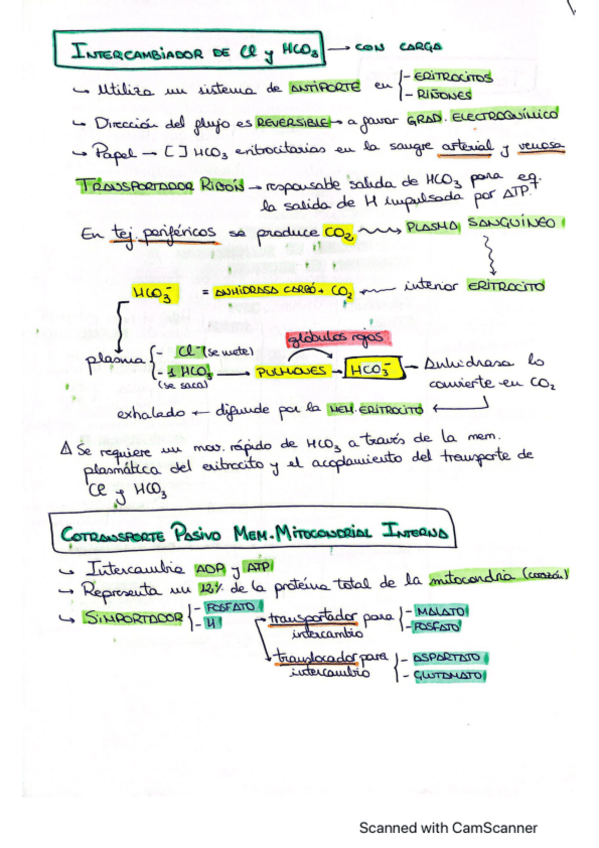 INTERCAMBIADOR DE Cl y HCO3 → CON CARGA
↳ Utiliza un sistema de ANTIPORTE en {- ERITROCITOS
- RIÑONES
↳ Dirección del flujo es REVERSIBLE → a favor GRAD. ELECTROQUÍMICO
↳ Papel → [ ] HCO3 eritrocitarias en la sangre arterial y venosa
TRANSPORTADOR → responsable salida de HCO3 para eq.
la salida de H impulsada por ATP.
En tej. periféricos se produce CO2 → PLASMA SANGUÍNEO
HCO3- = ANHIDRASA + CO2 ← interior ERITROCITO
glóbulos rojos
plasma {- Cl- (se mete)
- 1 HCO3 (se saca) → PULMONES → HCO3- → Anhidrasa lo
convierte en CO2
exhalado ← difunde por la MEM. ERITROCITO ←
Δ Se requiere un mov. rápido de HCO3 a través de la mem.
plasmática del eritrocito y el acoplamiento del transporte de
Cl y HCO3
COTRANSPORTE PASIVO MEM. MITOCONDRIAL INTERNA
↳ Intercambia ADP y ATP
↳ Representa un 12% de la proteína total de la mitocondria (corazón)
↳ SIMPORTADOR {- FOSFATO
- H
transportador para intercambio {- MALATO
- FOSFATO
translocador para intercambio {- ASPARTATO
- GLUTAMATO
Scanned with CamScanner